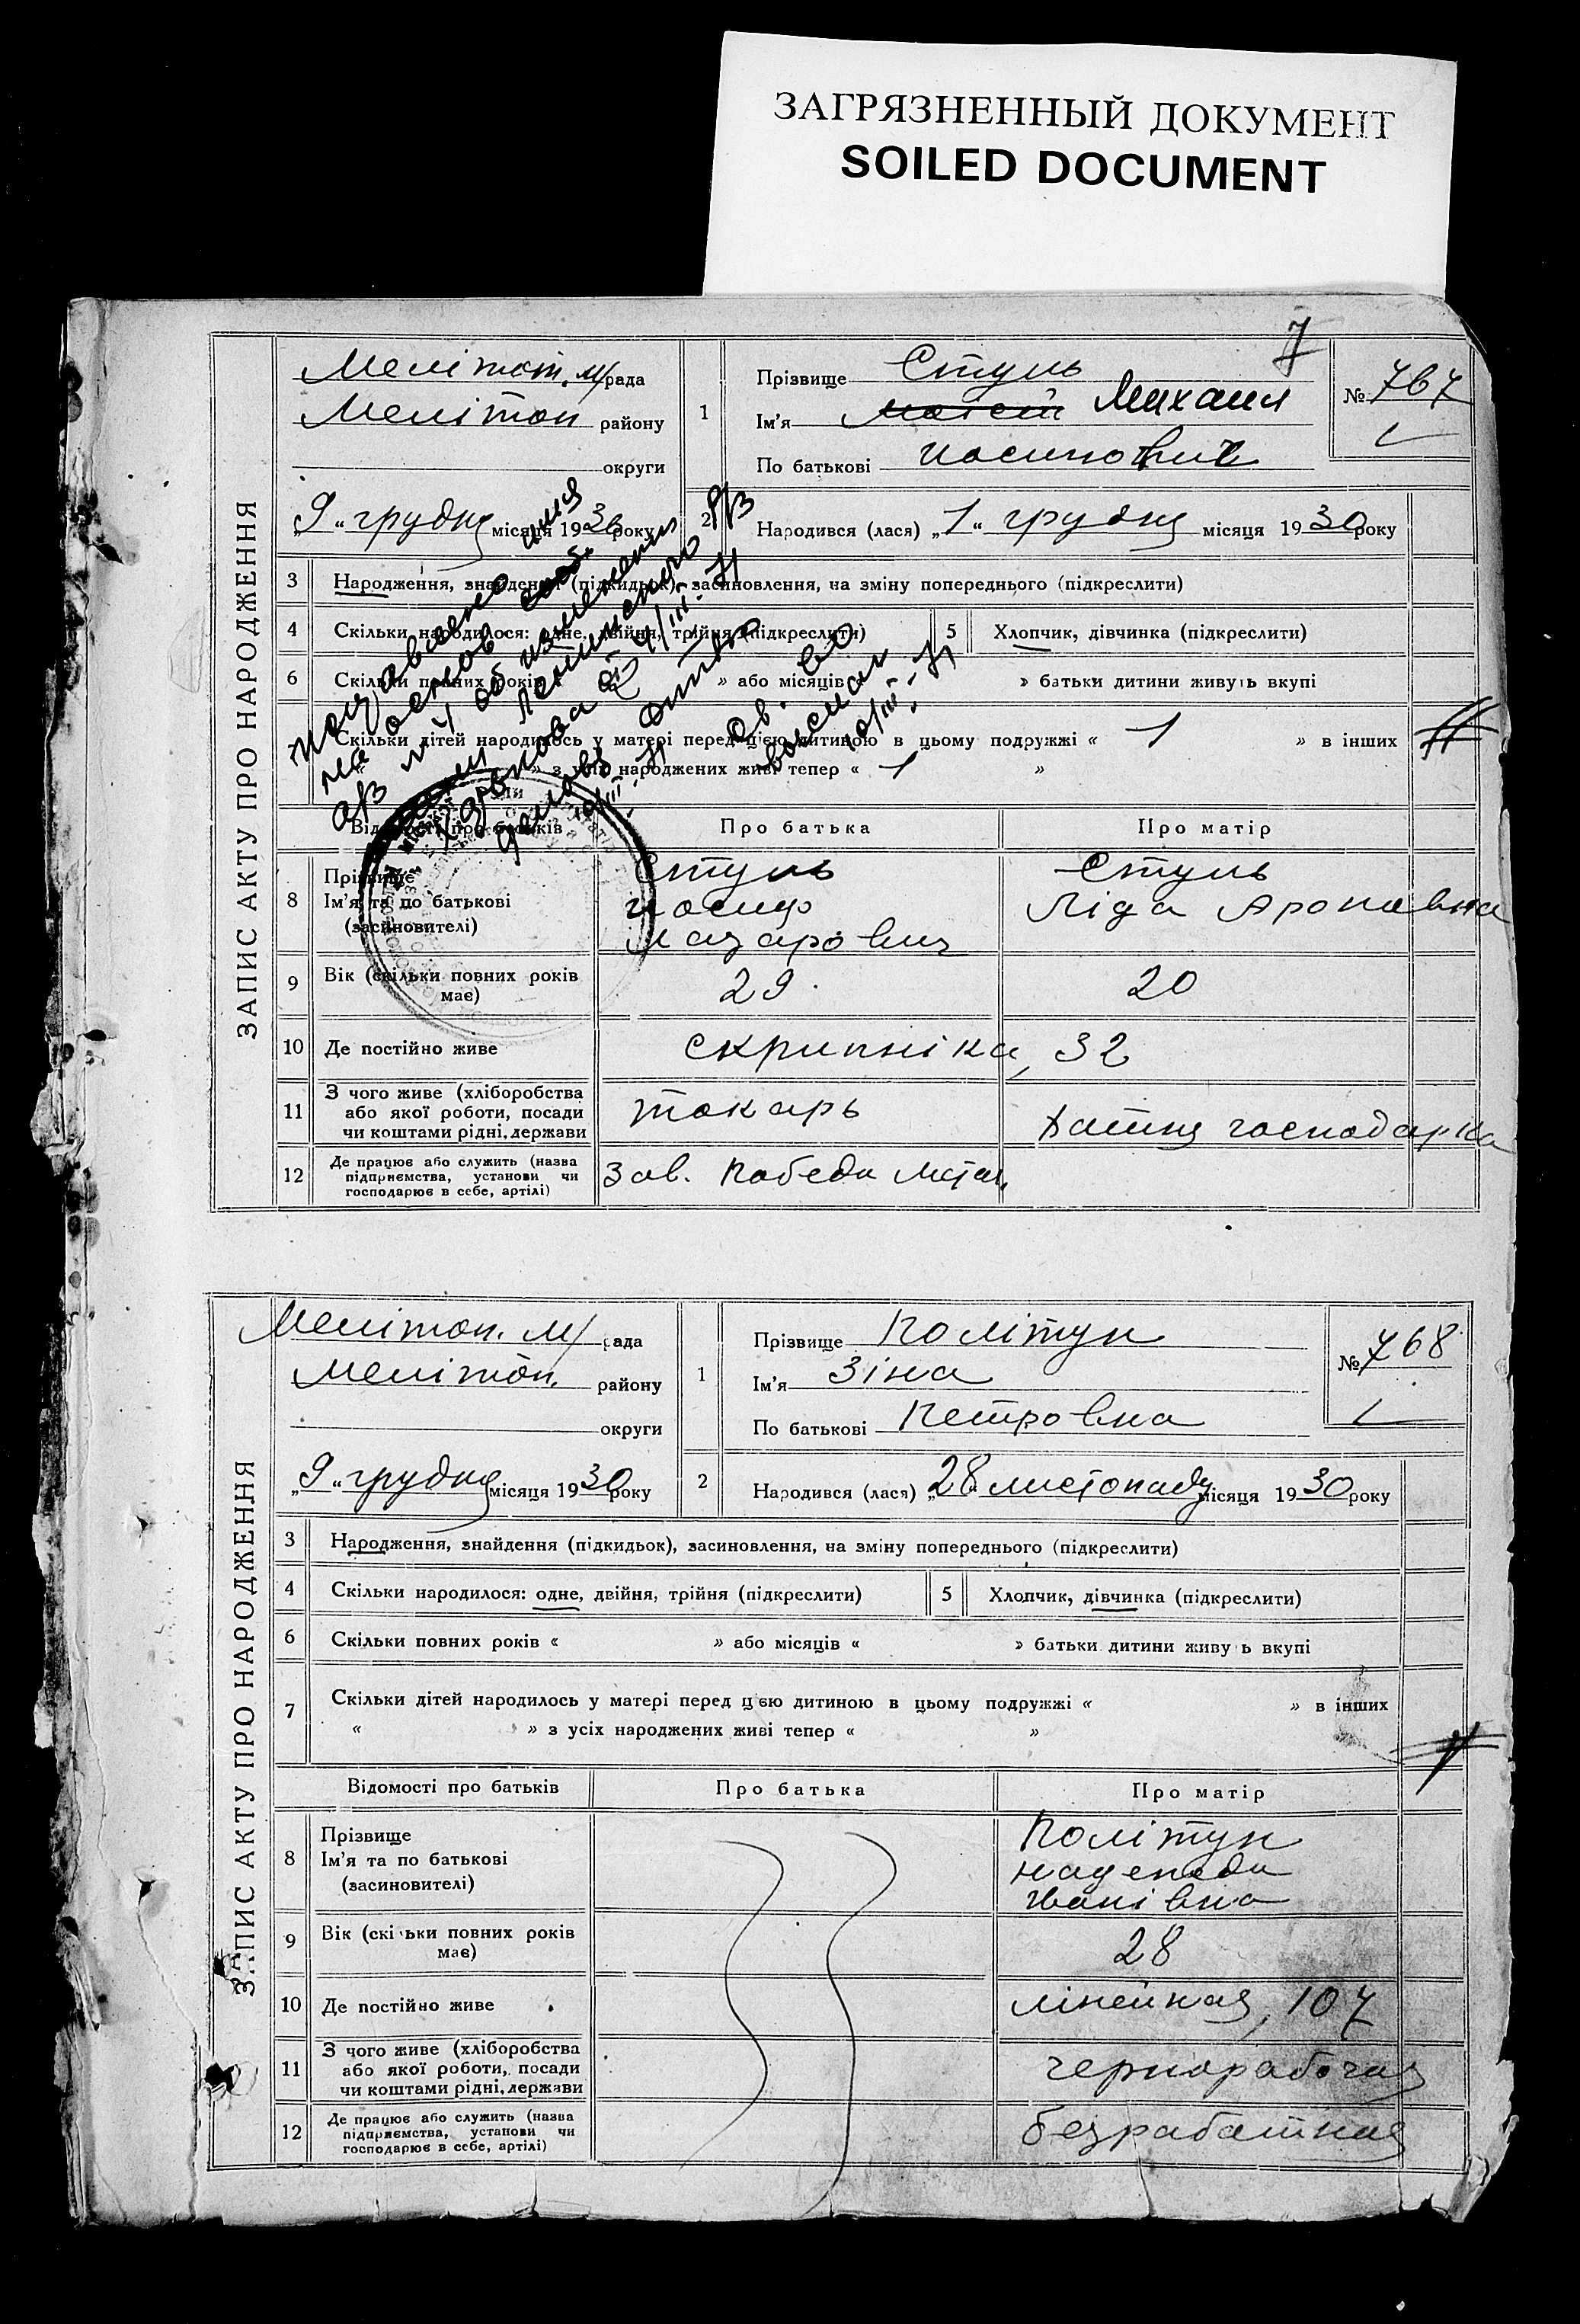 ЗАГРЯЗНЕННЫЙ ДОКУМЕНТ
SOILED DOCUMENT
7
ЗАПИС АКТУ ПРО НАРОДЖЕННЯ
Мелітоп. м/рада
Мелітоп району
округи
1
Прізвище Стуль
Ім'я Мойсей Михаил
По батькові Иосипович
№ 767
„9" грудня місяця 1930 року
2
Народився (лася) „1" грудня місяця 1930 року
3 Народження, знайдення (підкидьок), засиновлення, на зміну попереднього (підкреслити)
4 Скільки народилося: одне, двійня, трійня (підкреслити)
5 Хлопчик, дівчинка (підкреслити)
6 Скільки повних років « » або місяців « » батьки дитини живуть вкупі
Скільки дітей народилось у матері перед цією дитиною в цьому подружжі « 1 » в інших
« » з усіх народжених живі тепер « 1 »
имя
на основ
а/з №4 об изменении
Ленинского р/з
Харькова от 4/III-71
10/III-71
10/III-71
Відомості про батьків
Про батька
Про матір
8 Прізвище
Ім'я та по батькові
(засиновителі)
Стуль
Иосиф
Лазарович
Стуль
Ліда Ароновна
9 Вік (скільки повних років
має)
29
20
10 Де постійно живе
Скрипніка, 32
11 З чого живе (хліборобства
або якої роботи, посади
чи коштами рідні, держави
токарь
Хатня господарка
12 Де працює або служить (назва
підприємства, установи чи
господарює в себе, артілі)
Зав. Победа Метал.
ЗАПИС АКТУ ПРО НАРОДЖЕННЯ
Мелітоп. м/рада
Мелітоп. району
округи
1
Прізвище Політун
Ім'я Зіна
По батькові Петровна
№ 768
„9" грудня місяця 1930 року
2
Народився (лася) „28" листопаду місяця 1930 року
3 Народження, знайдення (підкидьок), засиновлення, на зміну попереднього (підкреслити)
4 Скільки народилося: одне, двійня, трійня (підкреслити)
5 Хлопчик, дівчинка (підкреслити)
6 Скільки повних років « » або місяців « » батьки дитини живуть вкупі
7 Скільки дітей народилось у матері перед цією дитиною в цьому подружжі « » в інших
« » з усіх народжених живі тепер « »
Відомості про батьків
Про батька
Про матір
8 Прізвище
Ім'я та по батькові
(засиновителі)
Політун
Надежда
Іванівна
9 Вік (скільки повних років
має)
28
10 Де постійно живе
Лінейная, 107
11 З чого живе (хліборобства
або якої роботи, посади
чи коштами рідні, держави
чернорабочая
12 Де працює або служить (назва
підприємства, установи чи
господарює в себе, артілі)
безработная